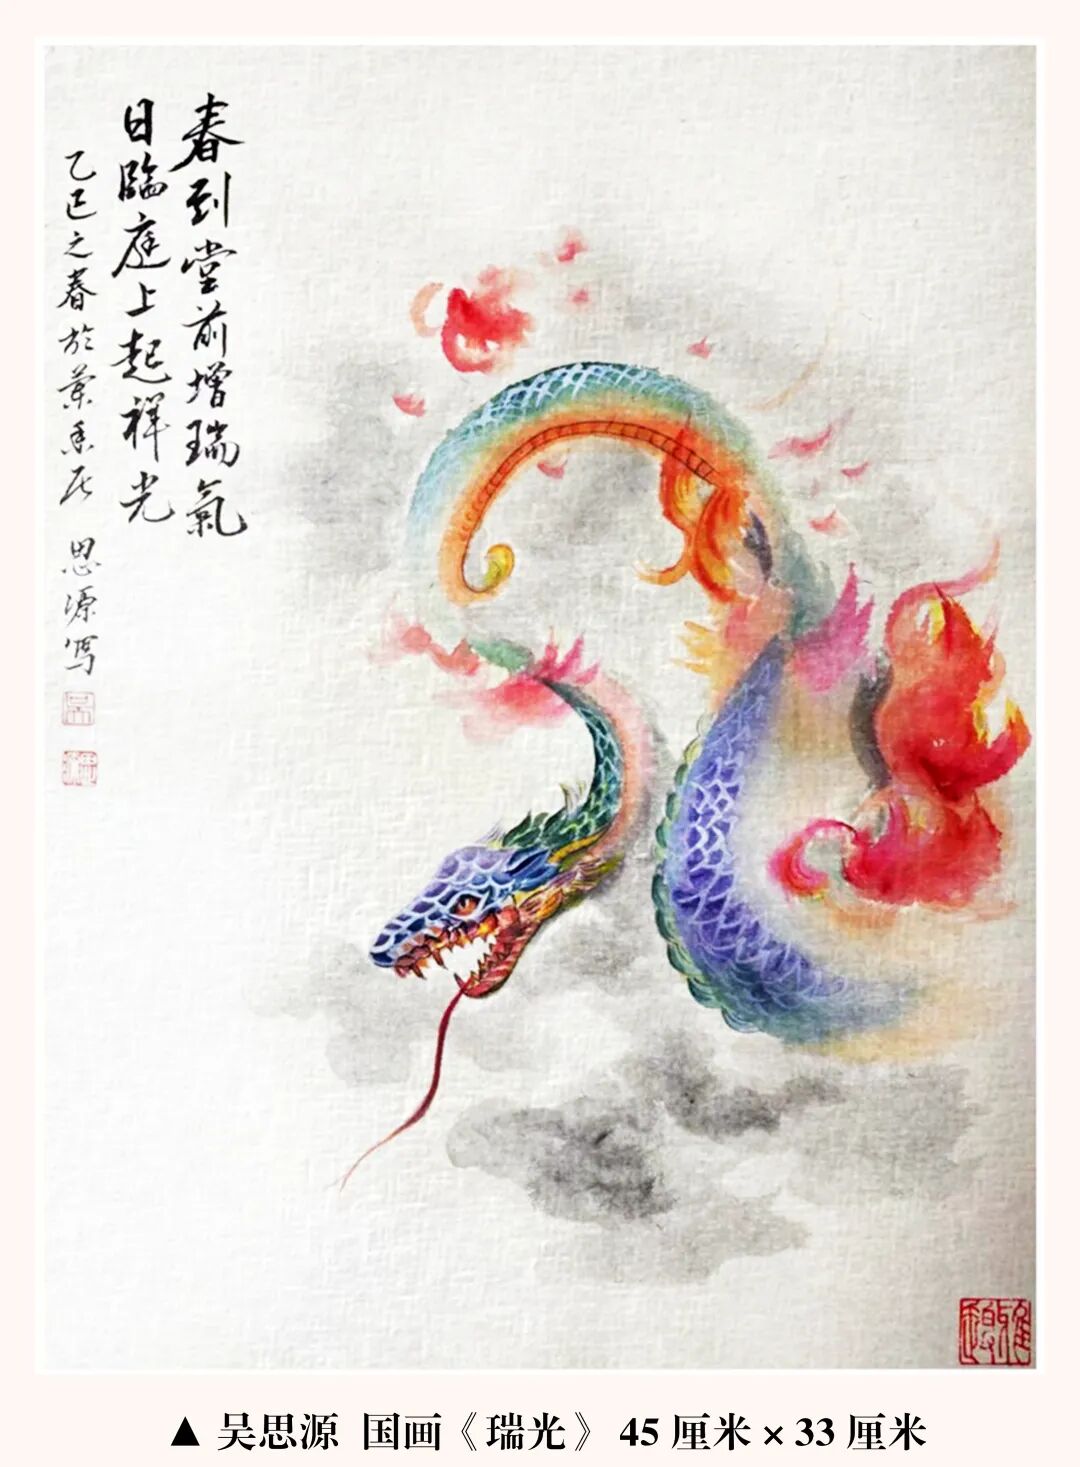 春到堂前增瑞氣
日臨庭上起祥光
乙巳之春於
思源寫
▲ 吴思源 国画《瑞光》 45 厘米 × 33 厘米